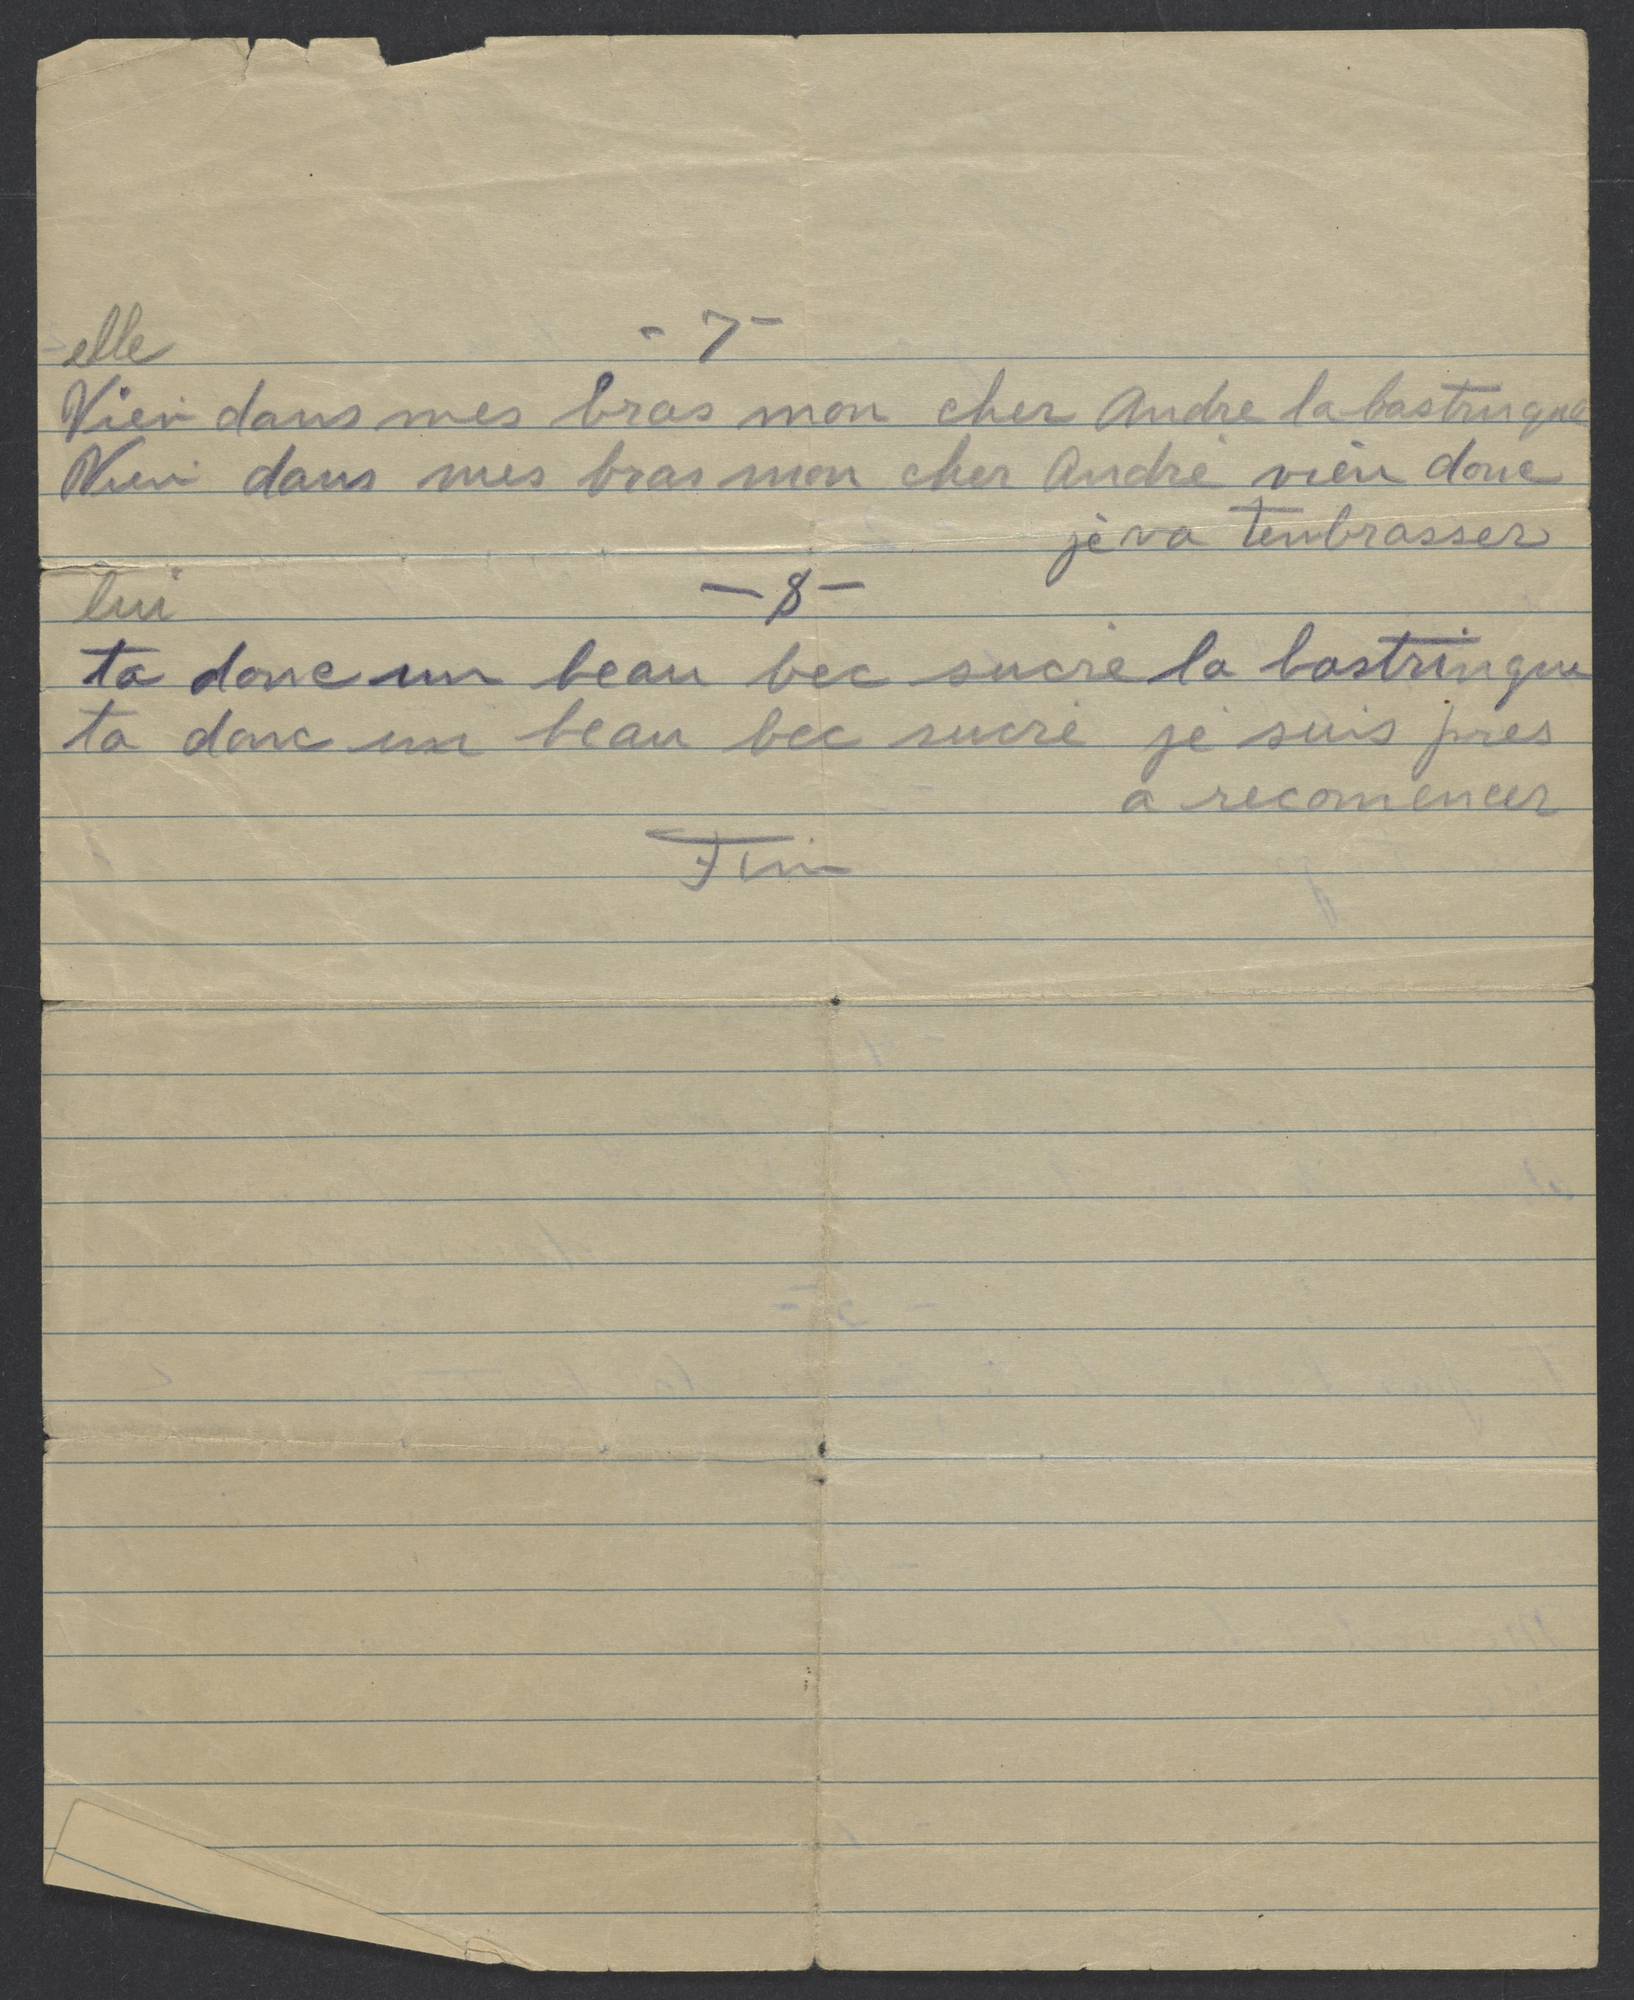 elle
- 7 -
Vien dans mes bras mon cher André la bastringue
Vien dans mes bras mon cher André vien donc
je va tenbrasser
lui
- 8 -
ta donc un beau bec sucré la bastringue
ta donc un beau bec sucré je suis pres
a recomencer
Fin